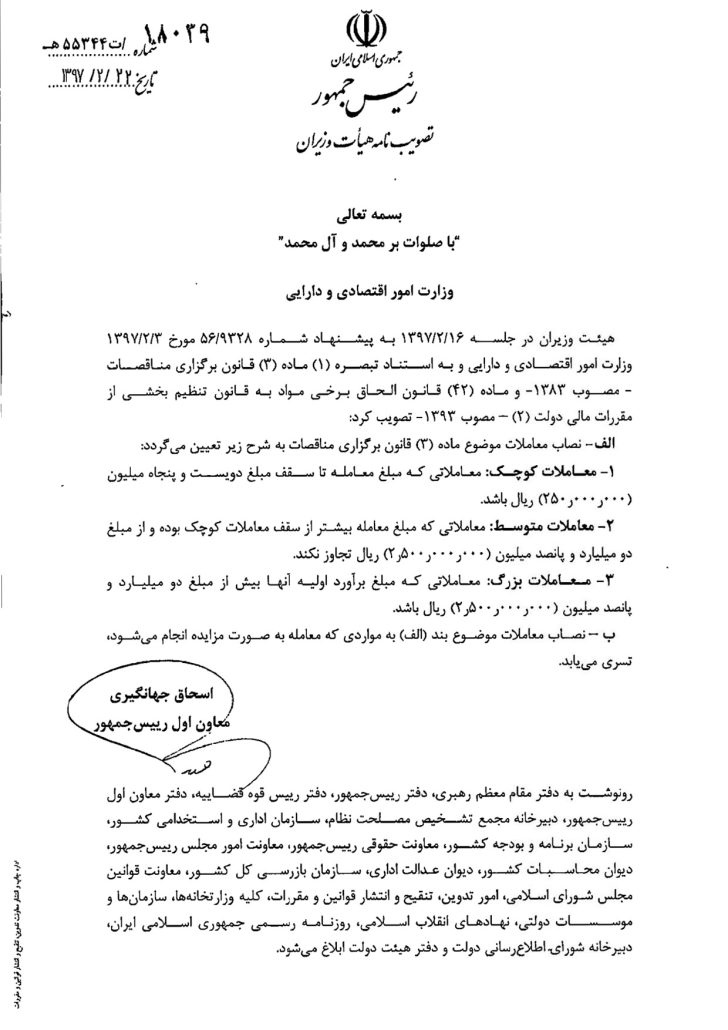 شماره ۱۸۰۳۹/ت۵۵۳۴۴هـ
تاریخ ۱۳۹۷/۲/۲۲
جمهوری اسلامی ایران
رئیس جمهور
تصویب نامه هیأت وزیران
بسمه تعالی
"با صلوات بر محمد و آل محمد"
وزارت امور اقتصادی و دارایی
هیئت وزیران در جلسه ۱۳۹۷/۲/۱۶ به پیشنهاد شماره ۵۶/۹۳۲۸ مورخ ۱۳۹۷/۲/۳
وزارت امور اقتصادی و دارایی و به استناد تبصره (۱) ماده (۳) قانون برگزاری مناقصات
- مصوب ۱۳۸۳- و ماده (۴۲) قانون الحاق برخی مواد به قانون تنظیم بخشی از
مقررات مالی دولت (۲) – مصوب ۱۳۹۳- تصویب کرد:
الف- نصاب معاملات موضوع ماده (۳) قانون برگزاری مناقصات به شرح زیر تعیین می‌گردد:
۱- معاملات کوچک: معاملاتی که مبلغ معامله تا سقف مبلغ دویست و پنجاه میلیون
(۲۵۰ر۰۰۰ر۰۰۰) ریال باشد.
۲- معاملات متوسط: معاملاتی که مبلغ معامله بیشتر از سقف معاملات کوچک بوده و از مبلغ
دو میلیارد و پانصد میلیون (۲ر۵۰۰ر۰۰۰ر۰۰۰) ریال تجاوز نکند.
۳- معاملات بزرگ: معاملاتی که مبلغ برآورد اولیه آنها بیش از مبلغ دو میلیارد و
پانصد میلیون (۲ر۵۰۰ر۰۰۰ر۰۰۰) ریال باشد.
ب – نصاب معاملات موضوع بند (الف) به مواردی که معامله به صورت مزایده انجام می‌شود،
تسری می‌یابد.
اسحاق جهانگیری
معاون اول رییس‌جمهور
رونوشت به دفتر مقام معظم رهبری، دفتر رییس‌جمهور، دفتر رییس قوه قضاییه، دفتر معاون اول
رییس‌جمهور، دبیرخانه مجمع تشخیص مصلحت نظام، سازمان اداری و استخدامی کشور،
سازمان برنامه و بودجه کشور، معاونت حقوقی رییس‌جمهور، معاونت امور مجلس رییس‌جمهور،
دیوان محاسبات کشور، دیوان عدالت اداری، سازمان بازرسی کل کشور، معاونت قوانین
مجلس شورای اسلامی، امور تدوین، تنقیح و انتشار قوانین و مقررات، کلیه وزارتخانه‌ها، سازمان‌ها و
موسسات دولتی، نهادهای انقلاب اسلامی، روزنامه رسمی جمهوری اسلامی ایران،
دبیرخانه شورای اطلاع‌رسانی دولت و دفتر هیئت دولت ابلاغ می‌شود.
اداره چاپ و انتشار معاونت تدوین، تنقیح و انتشار قوانین و مقررات